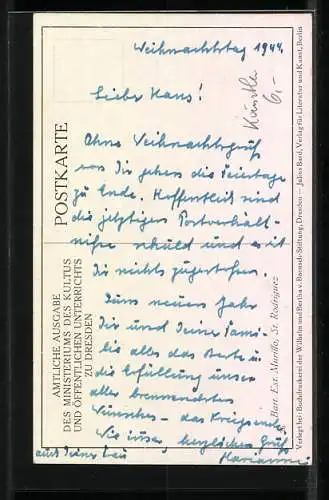 Weihnachtstag 1944.
Künstler
6.-
Lieber Hans!
Ohne Weihnachtsgruß
von Dir gehen die Feiertage
zu Ende. Hoffentlich sind
die jetzigen Postverhält-
nisse schuld und es ist
Dir nichts zugestoßen.
Zum neuen Jahr
Dir und Deiner Fami-
lie alles das Beste u.
die Erfüllung unser
aller brennendsten
Wunsches - das Kriegsende.
Wie immer, herzlichen Gruß
auch Deiner Frau
Marianne
POSTKARTE
AMTLICHE AUSGABE
DES MINISTERIUMS DES KULTUS
UND ÖFFENTLICHEN UNTERRICHTS
ZU DRESDEN
Bart. Est. Murillo, St. Rodriguez
Verlegt bei: Buchdruckerei der Wilhelm und Bertha v. Baensch-Stiftung, Dresden — Julius Bard, Verlag für Literatur und Kunst, Berlin